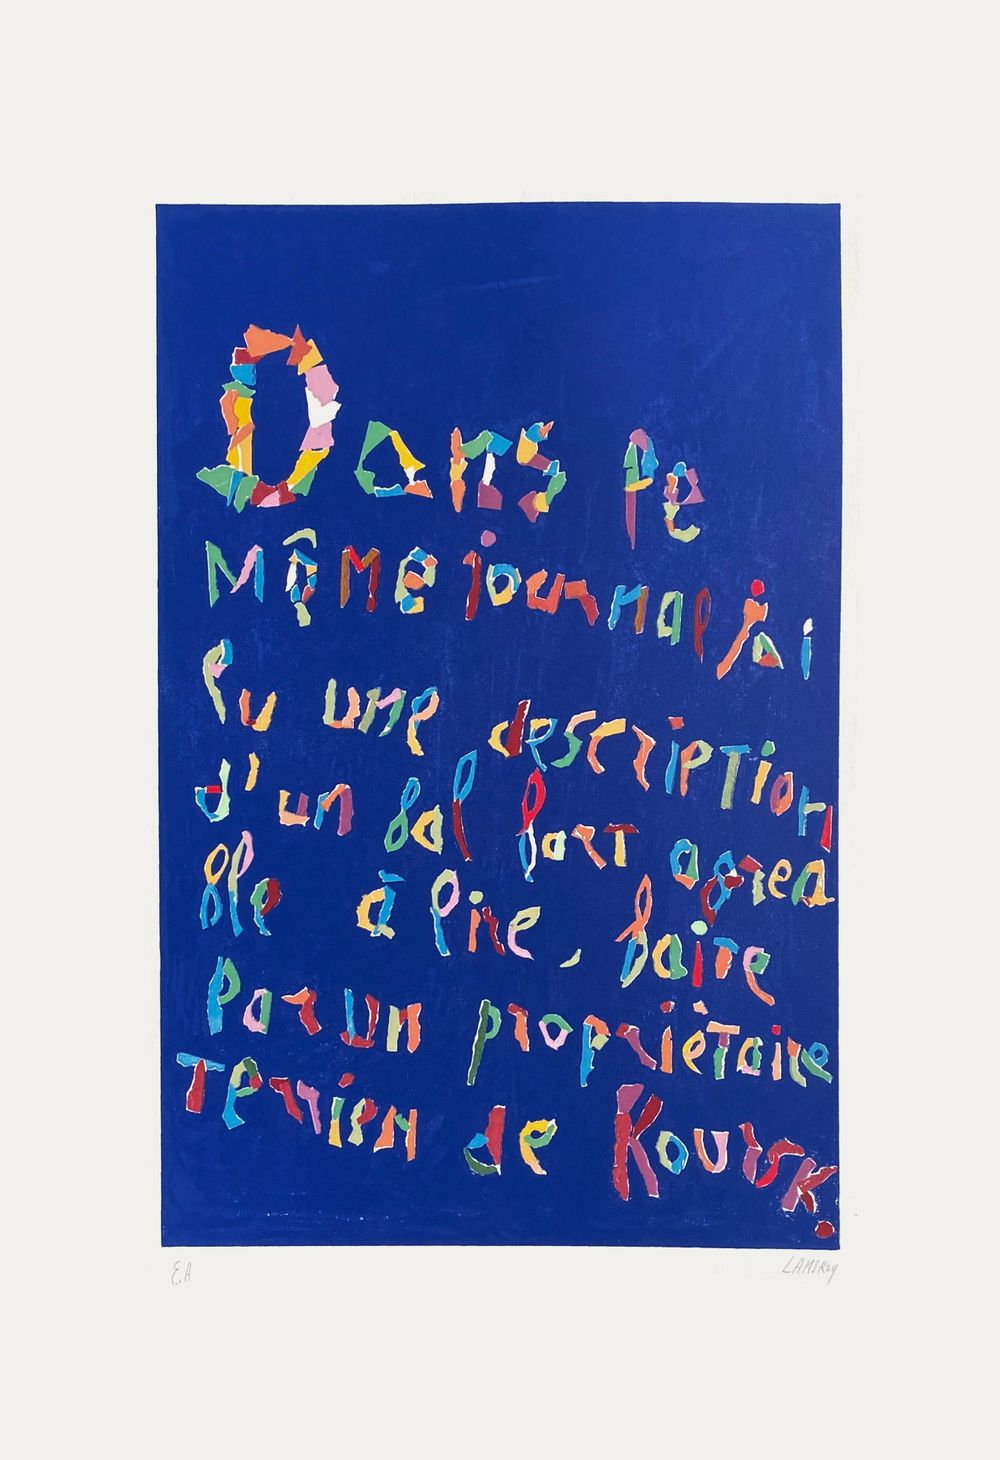 Dans le
même journal j'ai
lu une description
d'un bal fort agréa
ble à lire, faite
par un propriétaire
Terrien de Koursk.
E.A
LANSKOY